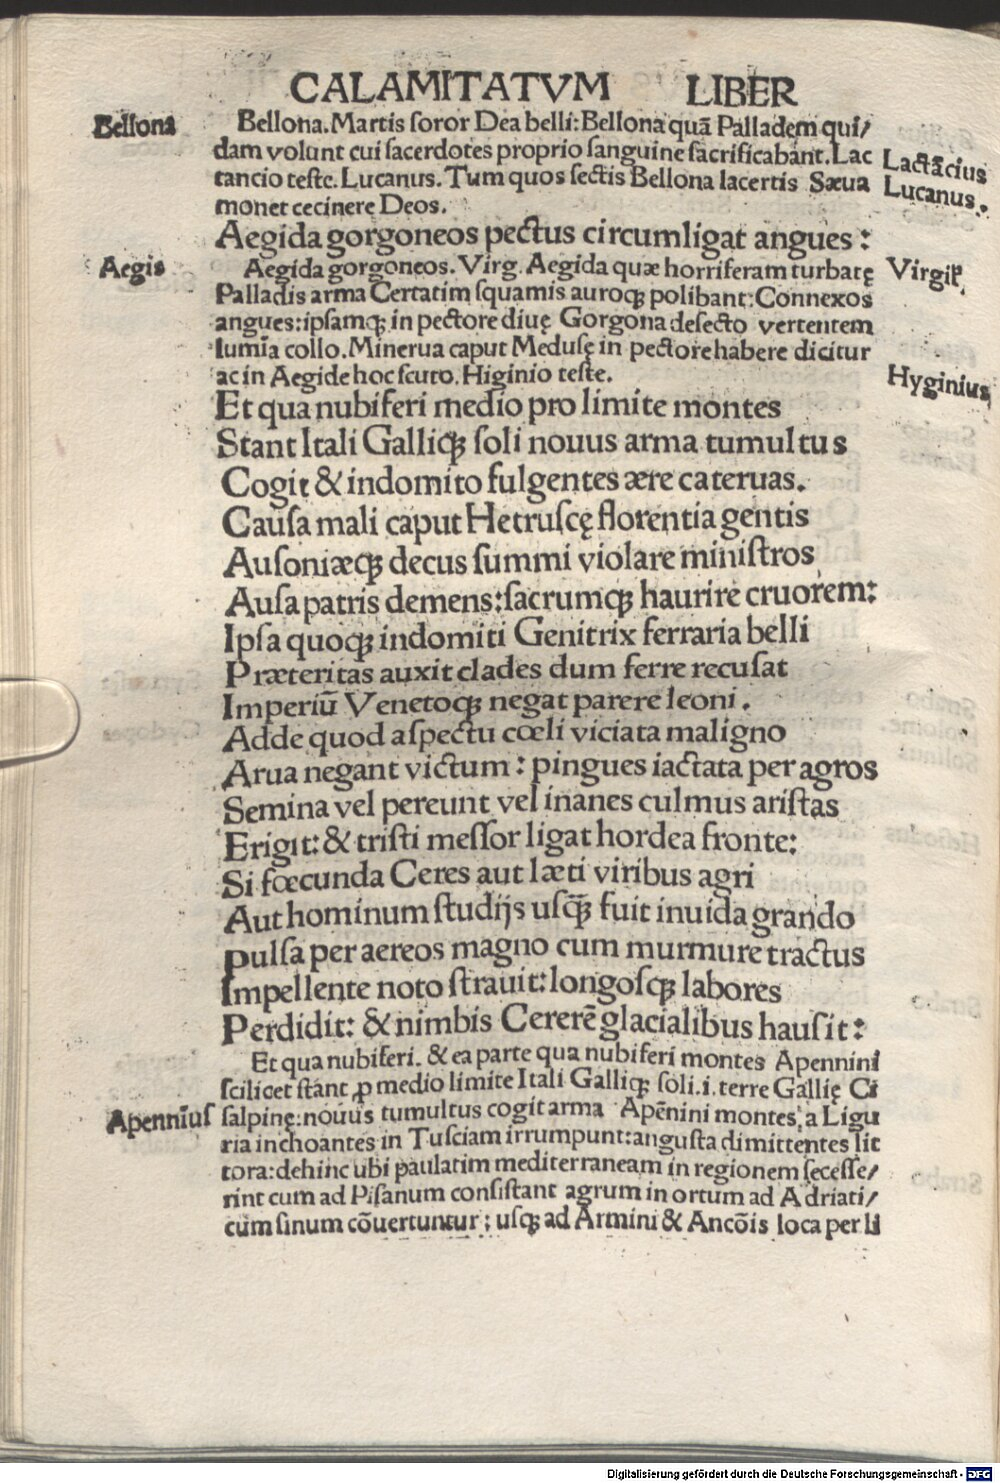 CALAMITATVM LIBER
Bellona
Bellona.Martis ſoror Dea belli:Bellona quā Palladem qui/
dam volunt cui ſacerdotes proprio ſanguine ſacrificabant.Lac
Lactācius
tancio teſte.Lucanus.Tum quos ſectis Bellona lacertis Sæua
Lucanus.
monet cecinere Deos.
Aegida gorgoneos pectus circumligat angues:
Aegis
Aegida gorgoneos.Virg.Aegida quæ horriferam turbatę
Virgiꝉ.
Palladis arma Certatim ſquamis auroqꝫ polibant:Connexos
angues:ipſamqꝫ in pectore diuę Gorgona deſecto vertentem
lumīa collo.Minerua caput Meduſę in pectore habere dicitur
ac in Aegide hoc ſcuto.Higinio teſte.
Hyginius
Et qua nubiferi medio pro limite montes
Stant Itali Galliqꝫ ſoli nouus arma tumultus
Cogit & indomito fulgentes ære cateruas.
Cauſa mali caput Hetruſcę florentia gentis
Auſoniæqꝫ decus ſummi violare miniſtros
Auſa patris demens:ſacrumqꝫ haurire cruorem:
Ipſa quoqꝫ indomiti Genitrix ferraria belli
Præteritas auxit clades dum ferre recuſat
Imperiū Venetoqꝫ negat parere leoni.
Adde quod aſpectu cœli viciata maligno
Arua negant victum: pingues iactata per agros
Semina vel pereunt vel inanes culmus ariſtas
Erigit:& triſti meſſor ligat hordea fronte:
Si fœcunda Ceres aut læti viribus agri
Aut hominum ſtudijs uſq̄ꝫ fuit inuida grando
Pulſa per aereos magno cum murmure tractus
Impellente noto ſtrauit:longoſqꝫ labores
Perdidit: & nimbis Cererē glacialibus hauſit:
Et qua nubiferi. & ea parte qua nubiferi montes Apennini
ſcilicet ſtant ꝓ medio limite Itali Galliqꝫ ſoli.i.terre Gallię Ci
ſalpinę:nouus tumultus cogit arma Apēnini montes, a Ligu
Apennīus
ria inchoantes in Tuſciam irrumpunt:anguſta dimittentes lit
tora:dehinc ubi paulatim mediterraneam in regionem ſeceſſe/
rint cum ad Piſanum conſiſtant agrum in ortum ad Adriati/
cum ſinum cōuertuntur; uſqꝫ ad Armini & Ancōis loca per li
Digitalisierung gefördert durch die Deutsche Forschungsgemeinschaft - DFG